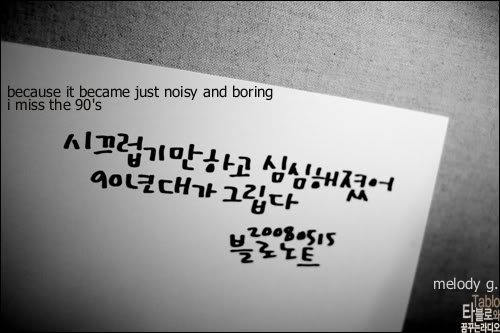 because it became just noisy and boring
i miss the 90's
시끄럽기만하고 심심해졌어
90년대가 그립다
20080515
블로노트
melody g.
Tablo
타블로와
꿈꾸는라디오